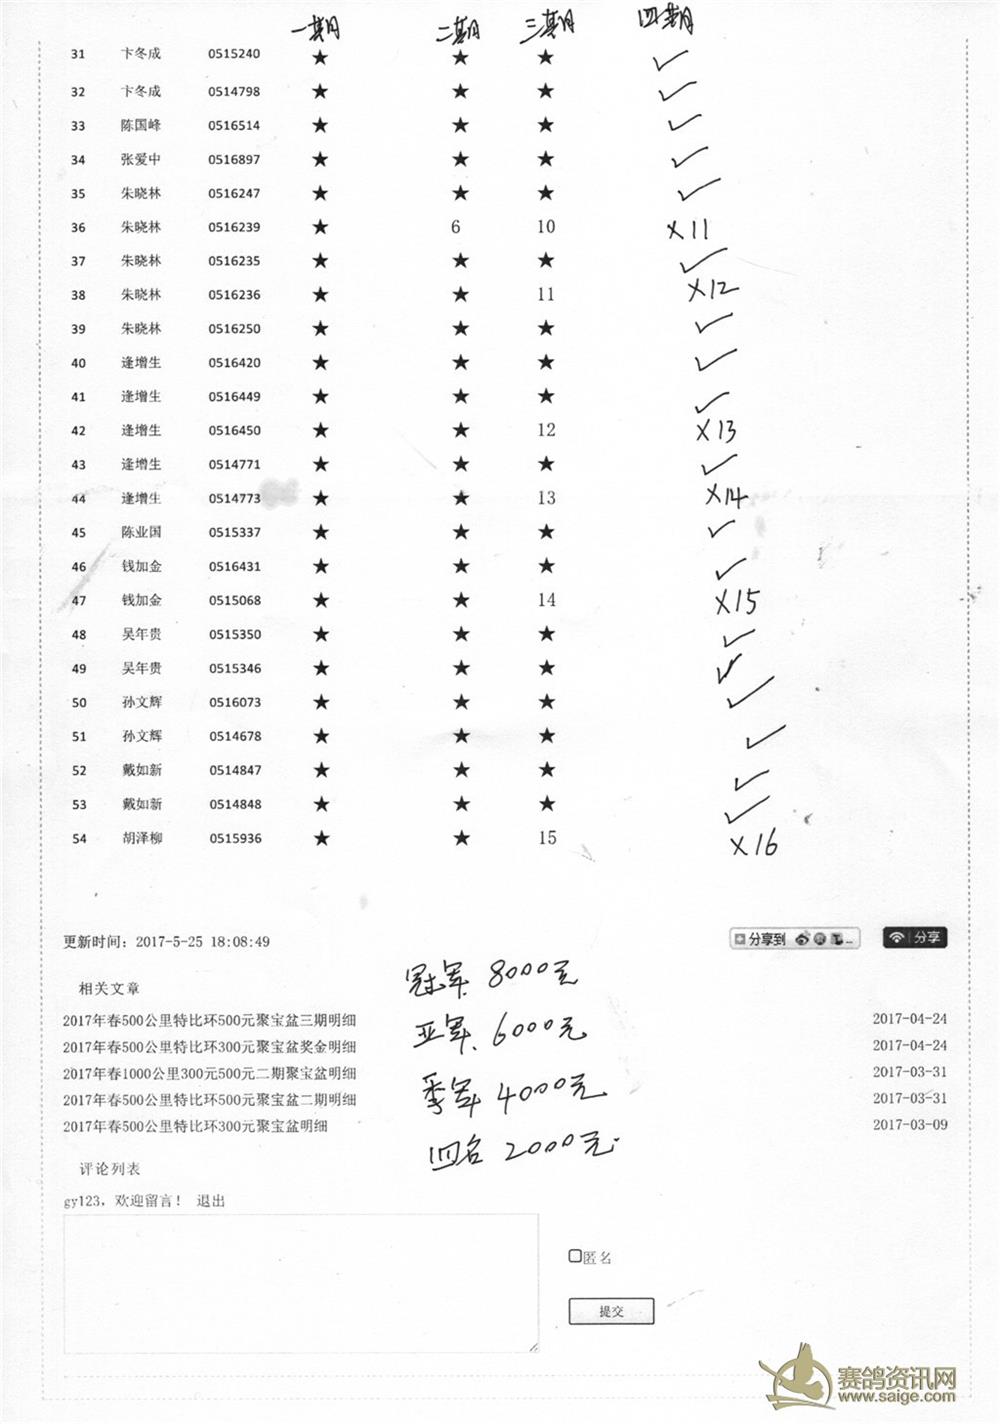 一期 二期 三期 四期
31 卞冬成 0515240 ★ ★ ★ ✓
32 卞冬成 0514798 ★ ★ ★ ✓
33 陈国峰 0516514 ★ ★ ★ ✓
34 张爱中 0516897 ★ ★ ★ ✓
35 朱晓林 0516247 ★ ★ ★ ✓
36 朱晓林 0516239 ★ 6 10 X11
37 朱晓林 0516235 ★ ★ ★ ✓
38 朱晓林 0516236 ★ ★ 11 X12
39 朱晓林 0516250 ★ ★ ★ ✓
40 逄增生 0516420 ★ ★ ★ ✓
41 逄增生 0516449 ★ ★ ★ ✓
42 逄增生 0516450 ★ ★ 12 X13
43 逄增生 0514771 ★ ★ ★ ✓
44 逄增生 0514773 ★ ★ 13 X14
45 陈业国 0515337 ★ ★ ★ ✓
46 钱加金 0516431 ★ ★ ★ ✓
47 钱加金 0515068 ★ ★ 14 X15
48 吴年贵 0515350 ★ ★ ★ ✓
49 吴年贵 0515346 ★ ★ ★ ✓
50 孙文辉 0516073 ★ ★ ★ ✓
51 孙文辉 0514678 ★ ★ ★ ✓
52 戴如新 0514847 ★ ★ ★ ✓
53 戴如新 0514848 ★ ★ ★ ✓
54 胡泽柳 0515936 ★ ★ 15 X16
更新时间：2017-5-25 18:08:49 分享到 分享
相关文章 冠军. 8000元
2017年春500公里特比环500元聚宝盆三期明细 2017-04-24
亚军. 6000元
2017年春500公里特比环300元聚宝盆奖金明细 2017-04-24
2017年春1000公里300元500元二期聚宝盆明细 2017-03-31
季军 4000元
2017年春500公里特比环500元聚宝盆二期明细 2017-03-31
2017年春500公里特比环300元聚宝盆明细 2017-03-09
四名 2000元
评论列表
gy123，欢迎留言！ 退出
匿名
提交
赛鸽资讯网
www.saige.com